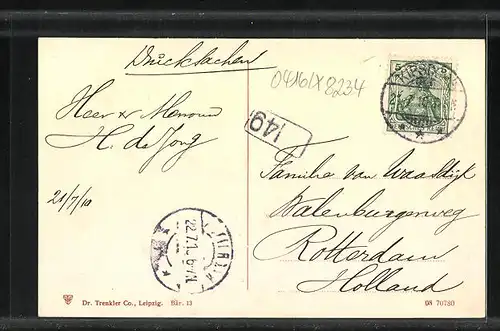 Drucksachen
0416/X8234
Heer & Mevrouw
H. de Jong
21/7/10
149
Familie van Waasdijk
Walenburgerweg
Rotterdam
Holland
22.7.10 6-7N
Dr. Trenkler Co., Leipzig. Bär. 13
ON 70780